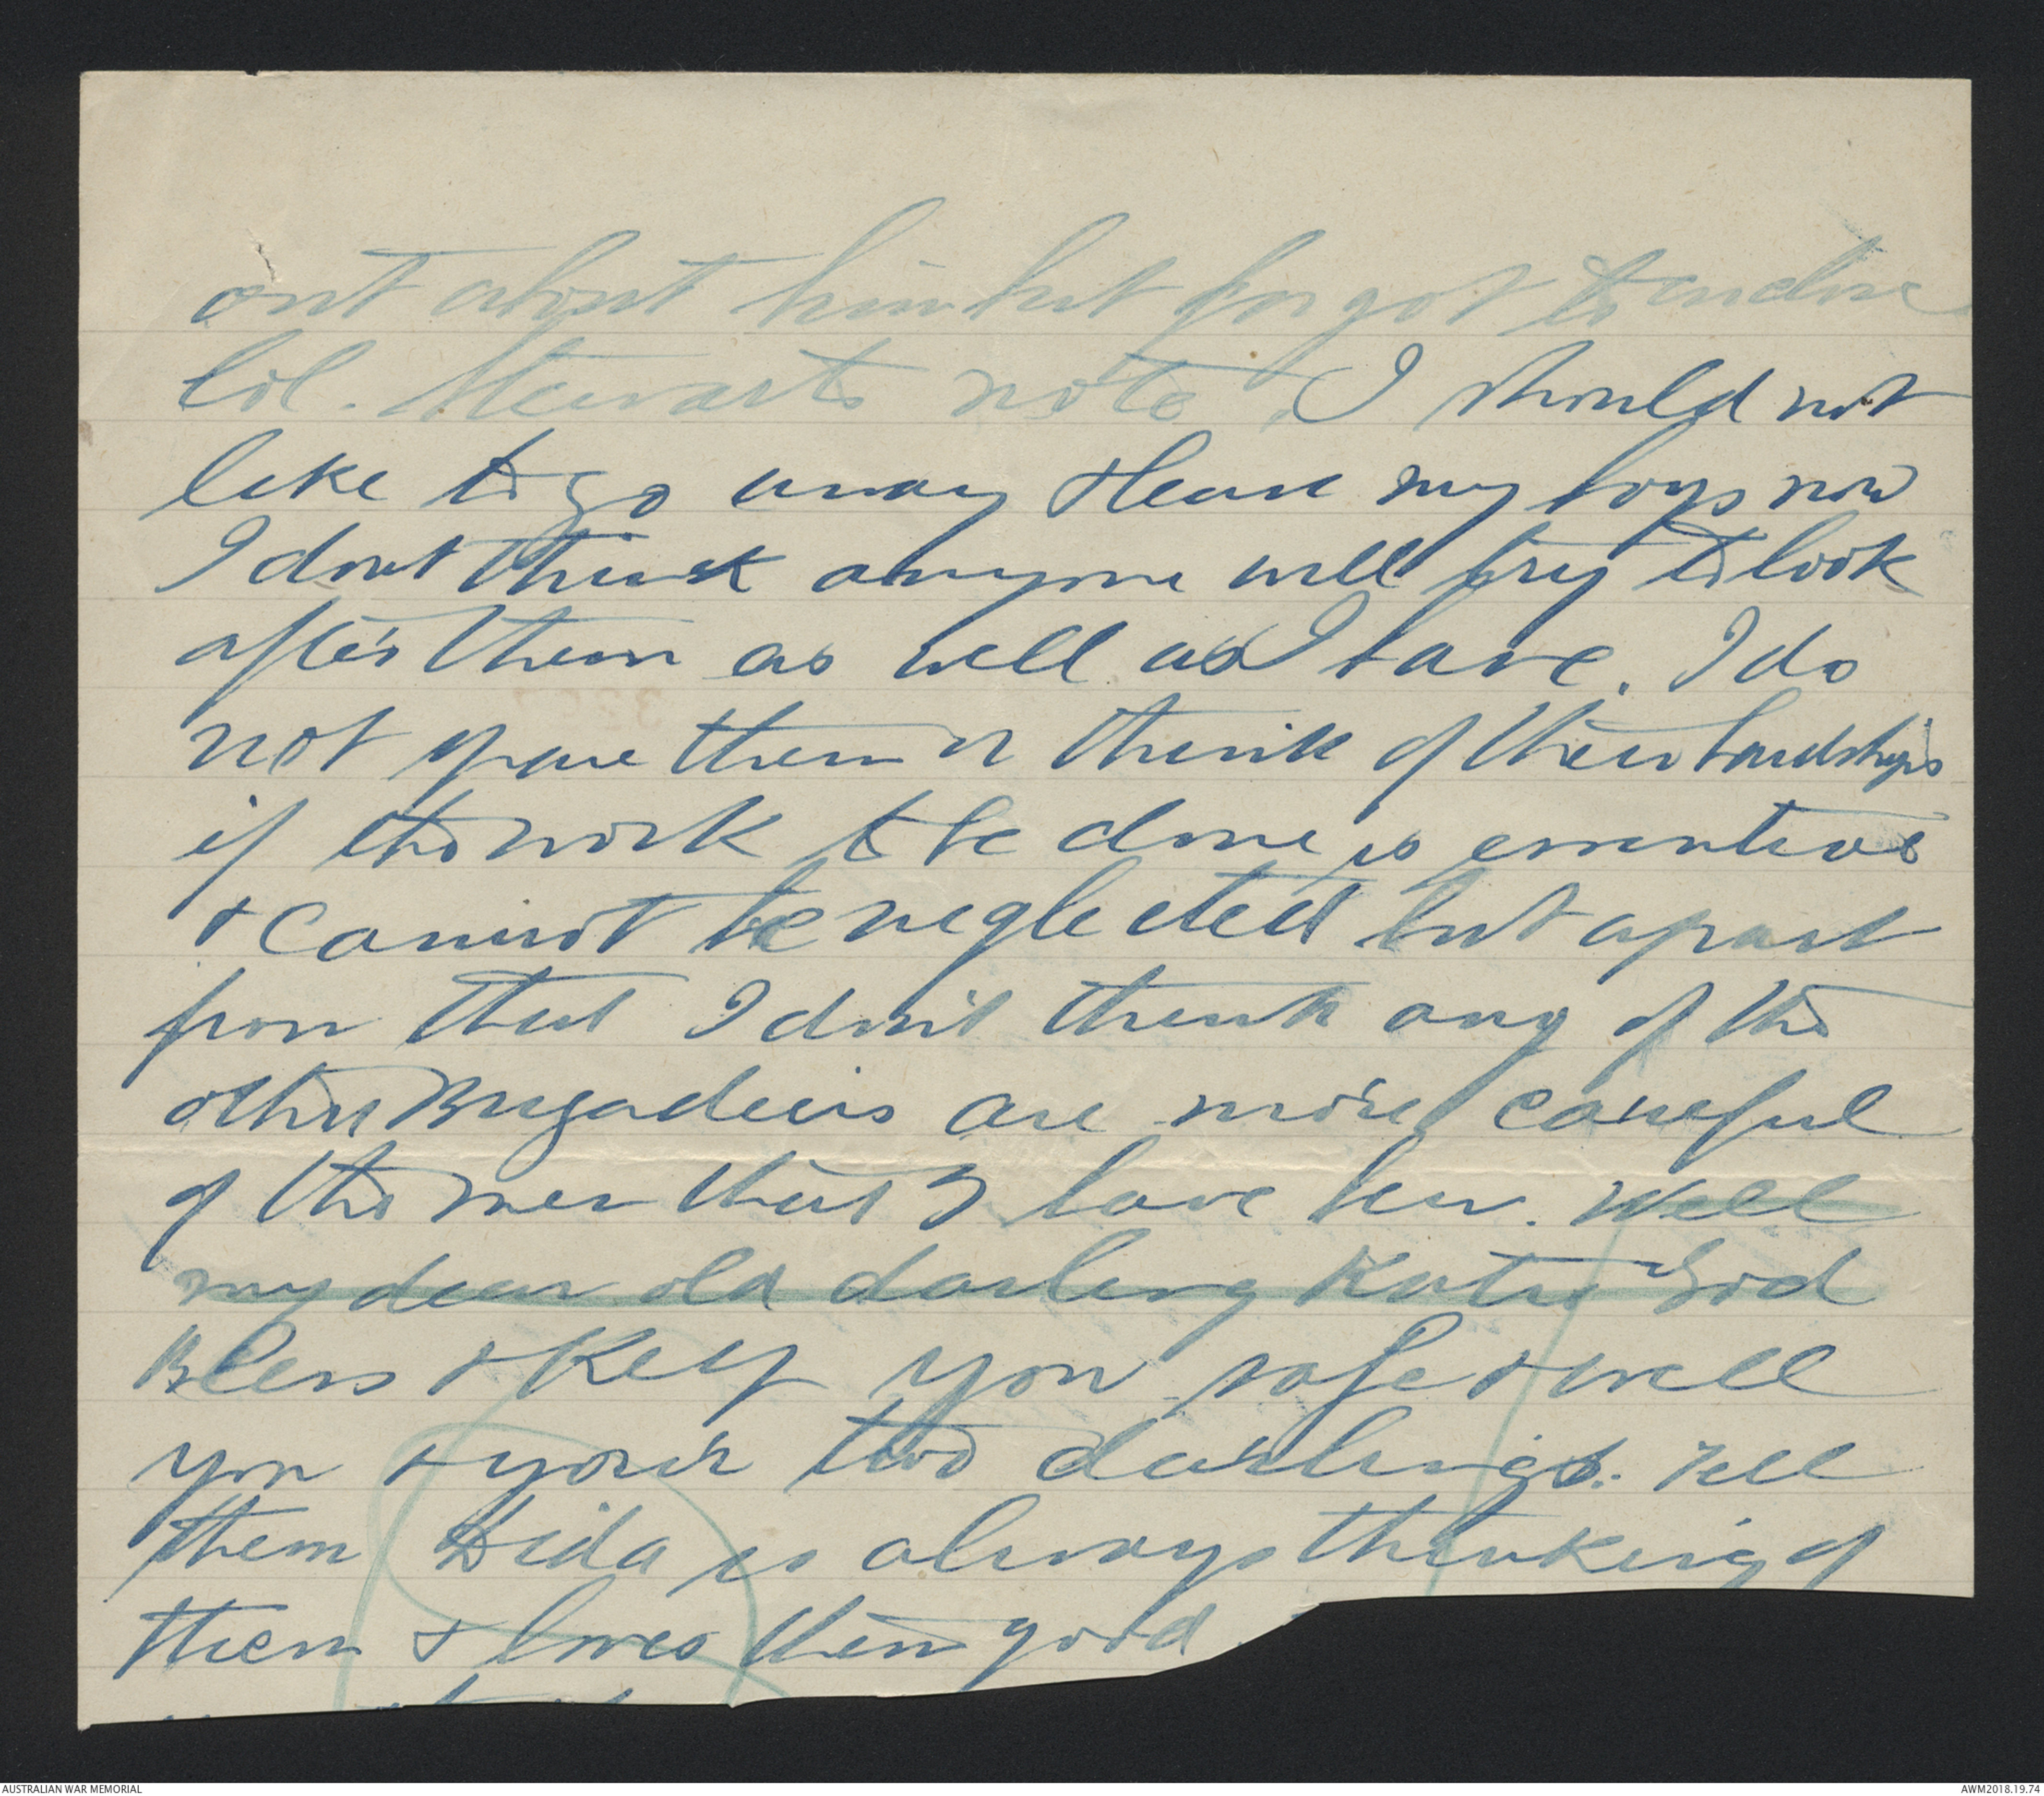 out about him but forgot to enclose
Col. Stewarts note. I should not
like to go away & leave my boys now
I dont think anyone will try to look
after them as well as I have. I do
not spare them or think of their hardships
if the work to be done is essential
& cannot be neglected but apart
from that I don't think any of the
other Brigadiers are more careful
of the men that I have been. Well
my dear old darling Katie God
Bless & Keep you safe & well
you & your two darlings. Tell
them Dida is always thinking of
them & loves them good
AUSTRALIAN WAR MEMORIAL
AWM2018.19.74